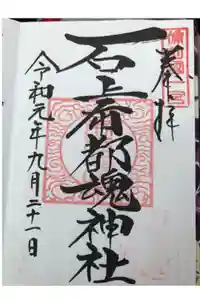 奉拝
石上布都魂神社
令和元年九月二十一日